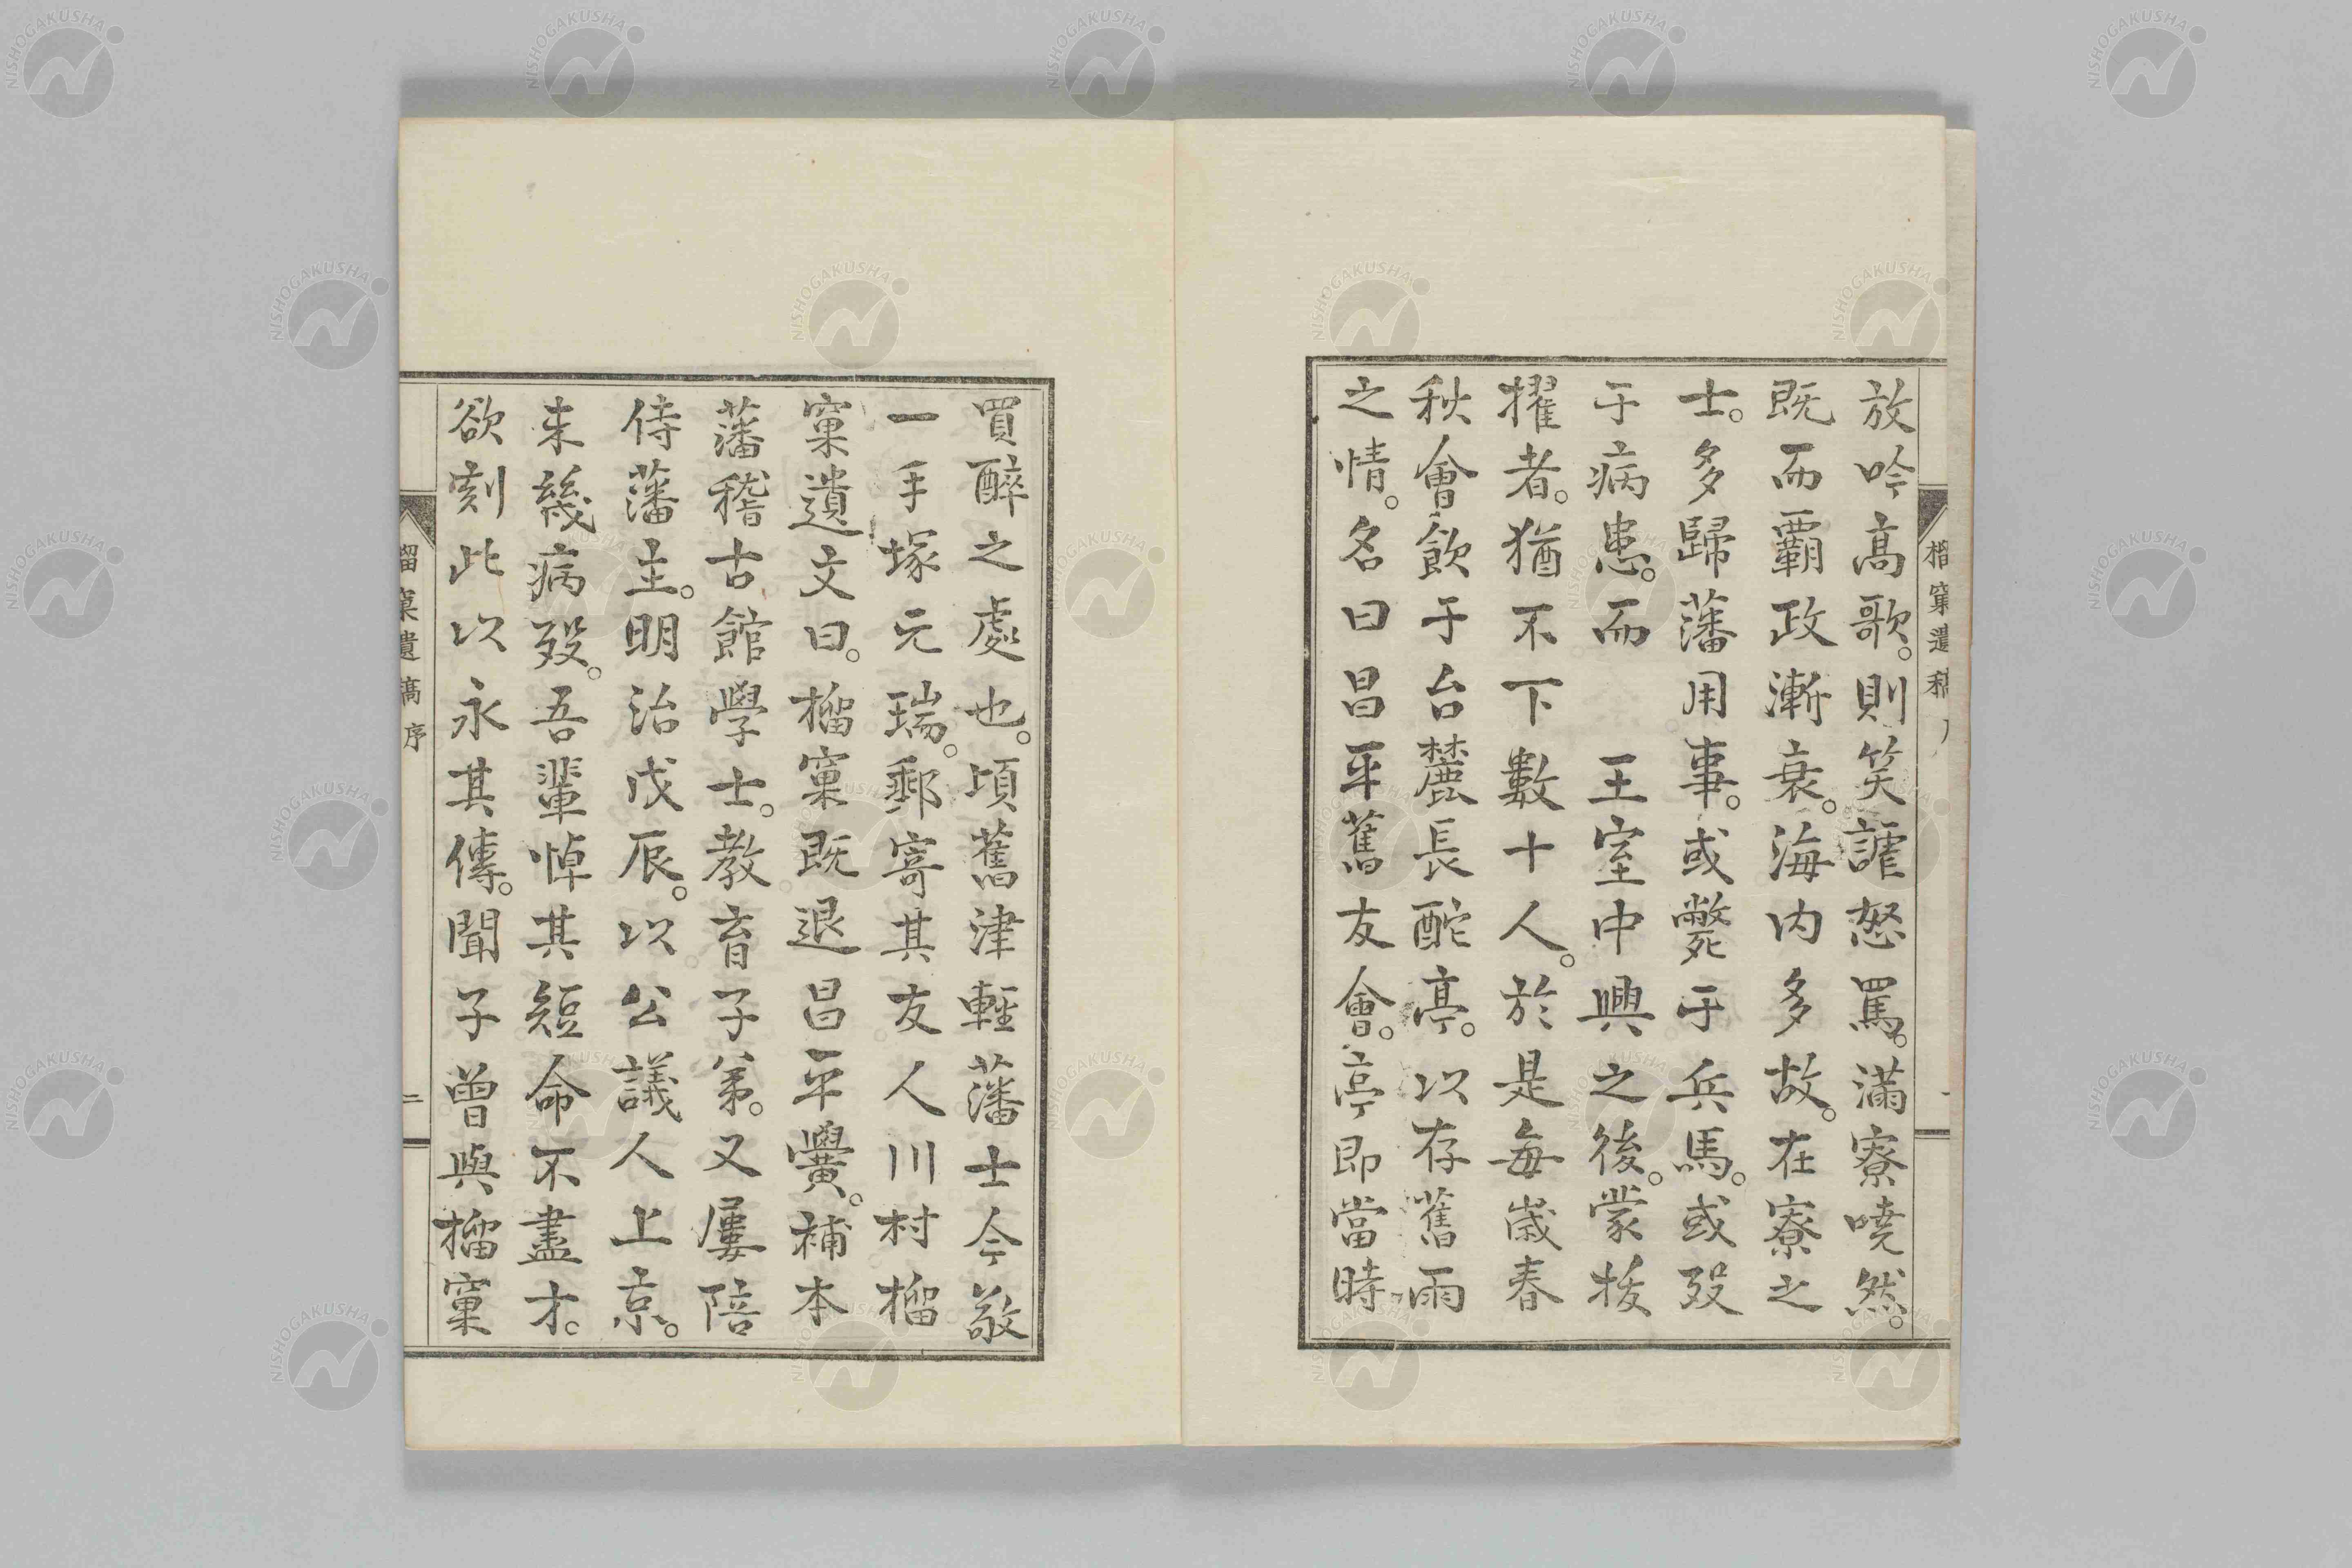 放吟高歌。則笑謔怒罵。滿寮嘵然。
既而覇政漸衰。海内多故。在寮之
士。多歸藩用事。或斃于兵馬。或歿
于病患。而　王室中興之後。蒙拔
擢者。猶不下數十人。於是每歲春
秋會飲于台麓長酡亭。以存舊雨
之情。名曰昌平舊友會。亭即當時
買醉之處也。頃舊津輕藩士今敬
一手塚元瑞。郵寄其友人川村榴
窠遺文曰。榴窠既退昌平黌。補本
藩稽古館學士。教育子弟。又屢陪
侍藩主。明治戊辰。以公議人上京。
未幾病歿。吾輩悼其短命不盡才。
欲刻此以永其傳。聞子曾與榴窠
榴窠遺稿序
二
NISHOGAKUSHA